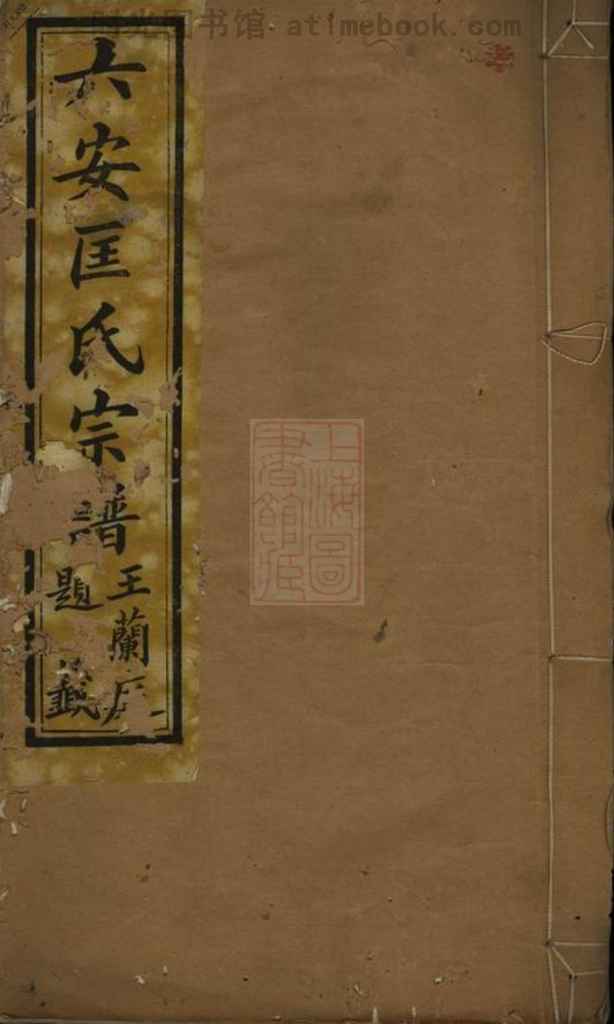 时光图书馆 - atimebook.com
六安匡氏宗譜
王蘭
題籤
上海圖書館藏